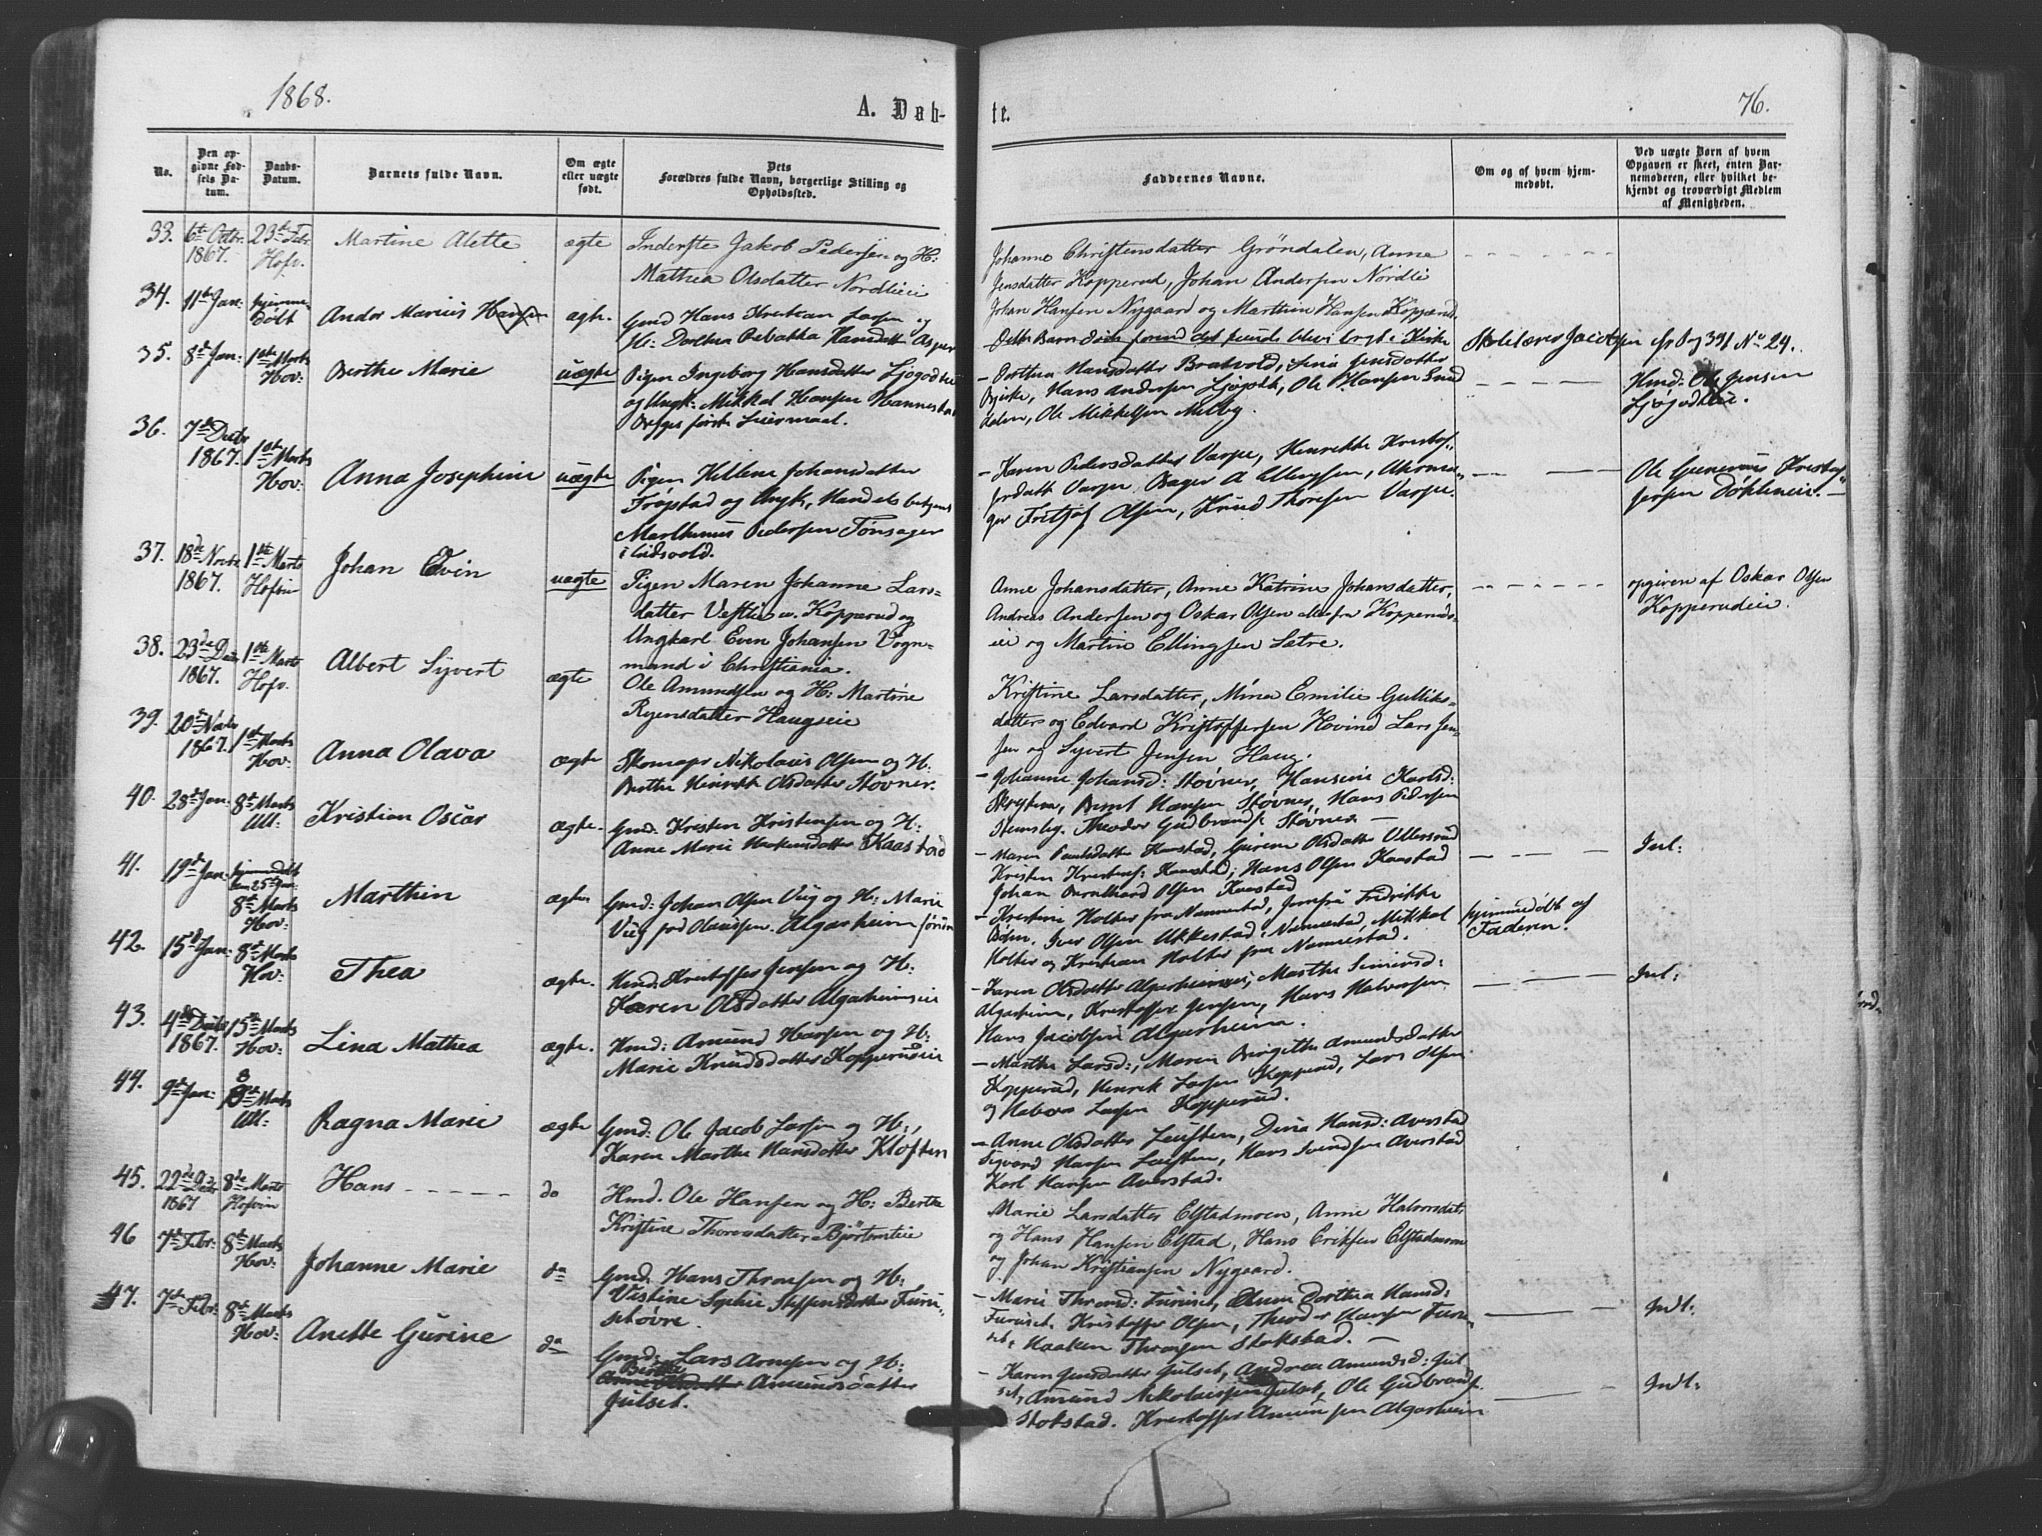 1868.
A. Døb-
te.
76.
No.
Den op-
givne Fød-
sels Da-
tum.
Daabs-
Datum.
Barnets fulde Navn.
Om ægte
eller uægte
født.
Dets
Forældres fulde Navn, borgerlige Stilling og
Opholdssted.
Faddernes Navne.
Om og af hvem hjem-
medøbt.
Ved uægte Børn af hvem
Opgaven er skeet, enten Bar-
nemoderen, eller hvilket be-
kjendt og troværdigt Medlem
af Menigheden.
33. 6te Octbr. 1867. 23de Febr. Hofv. Martine Alette ægte
Inderste Jakob Pedersen og H:
Mathea Olsdatter Nordlieie
Johanne Christensdatter Gröndalen, Anne
Jensdatter Kopperud, Johan Andersen Nordli
Johan Hansen Nygaard og Marthin Hansen Kopperud.
34. 11te Jan: hjemme døbt Andor Marius Hansen ægte.
Gmd Hans Kristian Larsen og
H: Dorthea Rebakka Hansdatt: Asper
Dette Barn døde forend det kunde blive bragt i Kirke
Skolelærer Jacobsen cfr Pag 391 No 24.
35. 8de Jan: 1ste Marts Hov: Berthe Marie uægte
Pigen Ingeborg Hansdatter Ljøgodtei
og Ungk: Mikkel Hansen Hannestad
Begges første Leiermaal.
- Dorthea Hansdatter Bratvold, Lina Jensdatter
Bjerke, Hans Andersen Ljøgodt, Ole Hansen Sund
dalen, Ole Mikkelsen Melby.
Hmd: Ole Jensen
Ljøgodteie.
36. 7de Decbr 1867. 1ste Marts Hov: Anna Josephine uægte
Pigen Hellene Johansdatter
Trøgstad og Ungk, Handels betjent
Marthinus Pedersen Tønsager
i Eidsvold.
- Karen Pedersdatter Varpe, Henrikke Kristof-
fersdatt Varpe. Bager A Ellingsen, Uhrma-
ger Fritjof Olsen, Knud Thoresen Varpe.
Ole Gunerius Kristof-
fersen Døhleneie. -
37. 18de Novbr 1867. 1ste Marts Hofvin Johan Evin uægte
Pigen Maren Johanne Lars-
datter Vestlie u. Kopperud og
Ungkarl Even Johansen Vogn-
mand i Christiania.
Anne Johansdatter, Anne Katrine Johansdatter,
Andreas Andersen og Oskar Olsen alle fra Kopperuds-
eie og Martin Ellingsen Sætre.
opgiven af Oskar Olsen
Kopperudeie.
38. 23de Decbr 1867. 1ste Marts Hofv. Albert Syvert ægte
Ole Amundsen og H: Martine
Ryensdatter Haugseie
Kristine Larsdatter, Mina Emilie Gulliks-
datter og Edvard Kristoffersen Hovind Lars Jen-
sen og Syvert Jensen Haug.
39. 20de Novbr 1867. 1ste Marts Hov: Anna Olava ægte
Skomager Nikolaus Olsen og H:
Berthe Henrikke Olsdatter Støvner.
- Johanne Johansd: Støvner, Hansine Karlsd:
Skrytern, Bernt Hansen Støvner, Hans Pedersen
Stensby. Theodor Gudbrands. Støvner -
40. 28de Jan: 8de Marts Ull: Kristian Oscar ægte.
Gmd. Kresten Kristensen og H:
Anne Marie Haakensdatter Kaastad
- Maren Paulsdatter Kaastad, Gurine Olsdatter Ullersrud
Kristen Kristens: Kaastad, Hans Olsen Kaastad
Johan Bernthard Olsen Kaastad
Int:
41. 19de Jan: hjemmedøbt den 25de Jan: 8de Marts Hov: Marthin ægte
Gmd: Johan Olsen Viig og H: Marie
Viig fød Olaussen. Algarheim
- Kristine Holter fra Nannestad, Jomfru Fredrikke
Bøhn. Iver Olsen Ukkestad i Nannestad, Mikkel
Holter og Kristian Holter fra Nannestad.
hjemmedøbt af
Faderen.
42. 15de Jan: 8de Marts Hov: Thea ægte.
Hmd. Kristoffer Jensen og H:
Karen Olsdatter Algarheimseie
- Karen Olsdatter Algarheimseie, Marthe Simensd:
Algarheim, Kristoffer Jensen, Hans Halvorsen
Hans Jacobsen Algarheim.
Int:
43. 4de Decbr 1867. 15de Marts Hov: Lina Mathea ægte.
Hmd: Amund Hansen og H:
Marie Knudsdatter Kopperudeie
- Marthe Larsd:, Maren Birgitte Amundsdatter
Kopperud, Henrik Larsen Kopperud, Lars Olsen
og Halvor Larsen Kopperud.
44. 9de Jan: 8de Marts Ull: Ragna Marie ægte
Gmd: Ole Jacob Larsen og H:,
Karen Marthe Hansdatter Kloften
- Anne Olsdatter Leisten, Dina Hansd: Averstad
Sigvard Hansen Leisten, Hans Svendsen Averstad
Karl Hansen Averstad.
45. 22de Decbr 1867 8de Marts Hofvin Hans - - - - do
Hmd. Ole Hansen og H: Berte
Kristine Thorensdatter Björtomteie
Marie Larsdatter Elstadmoen, Anne Halvorsdatt:
og Hans Hansen Elstad, Hans Eriksen Elstadmoen
og Johan Kristiansen Nygaard.
46 7de Febr: 8de Marts Hov: Johanne Marie do
Gmd. Hans Thronsen og H:
Vastine Sophie Steffensdatter Furu-
støvre.
- Marie Thronsd: Furuset, Anne Dorthea Hansd:
Furuset. Kristoffer Olsen, Theodor Hansen Furu-
set, Haaken Thronsen Stokstad. -
Indt:
47. 7de Febr: 8de Marts Hov: Anette Gurine do
Gmd: Lars Arnesen og H:
Berthe Amundsdatter
Julset.
- Karen Jensdatter Julset, Andrea Amundsd: Jul
set, Amund Nikolaisen Julset, Ole Gudbrands.
Stokstad. Kristoffer Amunsen Algarheim
Indt: